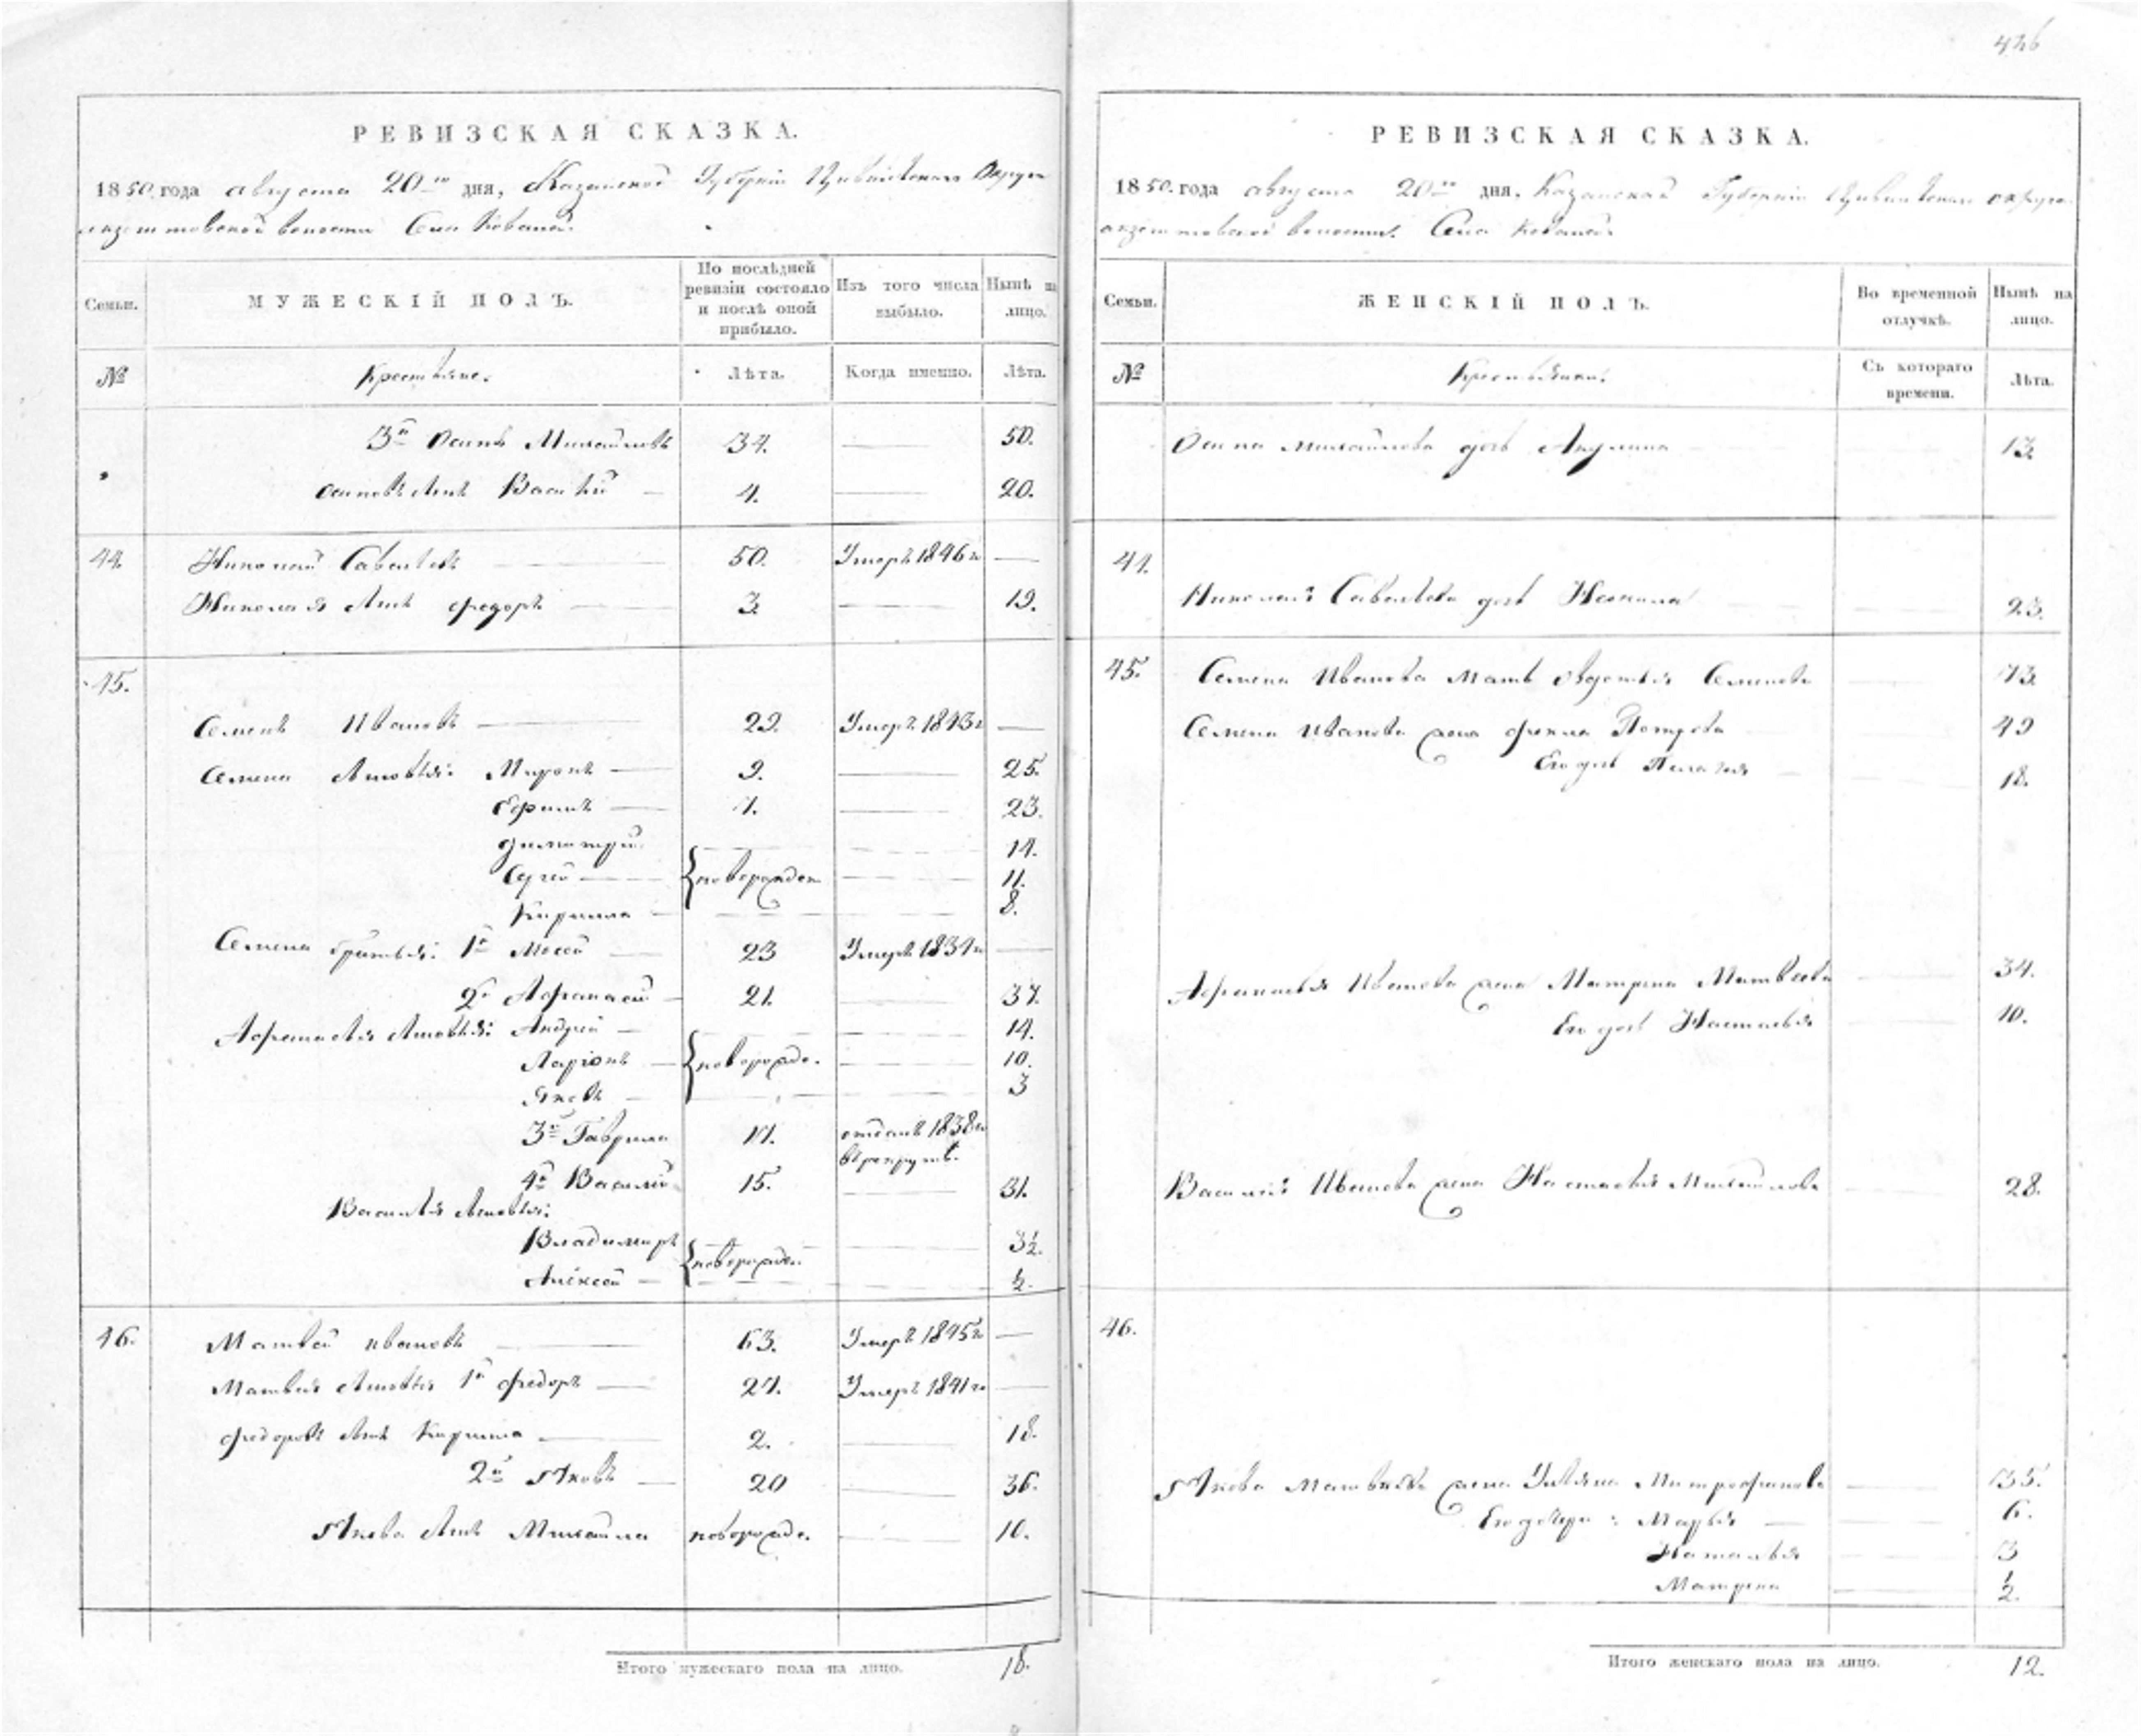 426
РЕВИЗСКАЯ СКАЗКА.
1850 года августа 20го дня, Казанской Губерніи Цивильскаго Округа
волости Села Ковалей.
Семьи. МУЖЕСКІЙ ПОЛЪ. По послѣдней ревизіи состояло и послѣ оной прибыло. Изъ того числа выбыло. Нынѣ на лицо.
№ Крестьяне. Лѣта. Когда именно. Лѣта.
3й Осипъ Михайловъ 34. 50.
Осиповъ сынъ Василій 4. 20.
44. Николай Савельевъ 50. Умеръ 1846г
Николая сынъ Федоръ 3. 19.
45.
Семенъ Ивановъ 29. Умеръ 1843г
Семена сыновья: Миронъ 9. 25.
Ефимъ 7. 23.
Димитрій 14.
Сергей новорожден 11.
Кирилла 8.
Семена братья: 1й Мосей 23 Умеръ 1834г
2й Афанасей 21. 37.
Афанасья сыновья: Андрей 14.
Ларіонъ новорожд. 10.
Яковъ 3
3й Гаврила отданъ 1838г
в рекруты.
4й Василій 15. 31.
Василья сыновья:
Владимиръ новорожден. 3½.
Алексей ½.
46. Матвей Ивановъ 63. Умеръ 1845г
Матвея сыновья 1й Федоръ 27. Умеръ 1841г
Федоровъ сынъ Кирилла 2. 18.
2й Яковъ 20 36.
Якова сынъ Михайла новорожд. 10.
Итого мужескаго пола на лицо. 18.
РЕВИЗСКАЯ СКАЗКА.
1850 года августа 20го дня, Казанской Губерніи Цивильскаго округа
волости. Села Ковалей.
Семьи. ЖЕНСКІЙ ПОЛЪ. Во временной отлучкѣ. Нынѣ на лицо.
№ Крестьянки. Съ котораго времени. Лѣта.
Осипа Михайлова дочь Акулина 13.
44.
Николая Савельева дочь 23.
45. Семена Иванова мать Овдотья Семенова 73.
Семена Иванова жена Фекла Петрова 49
Его дочь Пелагея 18.
Афанасья Иванова жена Матрена Матвеева 34.
Его дочь Настасья 10.
Василія Иванова жена Настасья Михайлова 28.
46.
Якова Матвеева жена Ульяна Митрофанова 35.
Его дочери: Марья 6.
Наталья 3
Матрена ½.
Итого женскаго пола на лицо. 12.